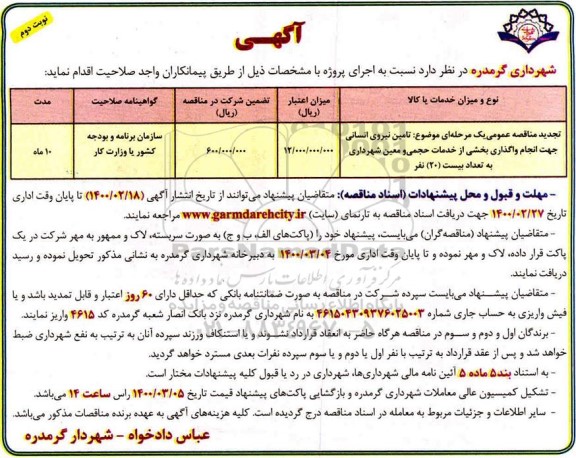 نوبت دوم
آگهـی
شهرداری گرمدره در نظر دارد نسبت به اجرای پروژه با مشخصات ذیل از طریق پیمانکاران واجد صلاحیت اقدام نماید:
نوع و میزان خدمات یا کالا
میزان اعتبار (ریال)
تضمین شرکت در مناقصه (ریال)
گواهینامه صلاحیت
مدت
تجدید مناقصه عمومی یک مرحله‌ای موضوع: تامین نیروی انسانی
جهت انجام واگذاری بخشی از خدمات حجمی و معین شهرداری
به تعداد بیست (۲۰) نفر
۱۲/۰۰۰/۰۰۰/۰۰۰
۶۰۰/۰۰۰/۰۰۰
سازمان برنامه و بودجه
کشور یا وزارت کار
۱۰ ماه
- مهلت و قبول و محل پیشنهادات (اسناد مناقصه): متقاضیان پیشنهاد می‌توانند از تاریخ انتشار آگهی (۱۴۰۰/۰۲/۱۸) تا پایان وقت اداری
تاریخ ۱۴۰۰/۰۲/۲۷ جهت دریافت اسناد مناقصه به تارنمای (سایت) www.garmdarehcity.ir مراجعه نمایند.
- متقاضیان پیشنهاد (مناقصه‌گران) می‌بایست، پیشنهاد خود را (پاکت‌های الف، ب و ج) به صورت سربسته، لاک و ممهور به مهر شرکت در یک
پاکت قرار داده، لاک و مهر نموده و تا پایان وقت اداری مورخ ۱۴۰۰/۰۳/۰۴ به دبیرخانه شهرداری گرمدره به نشانی مذکور تحویل نموده و رسید
دریافت نمایند.
- متقاضیان پیشنهاد می‌بایست سپرده شرکت در مناقصه به صورت ضمانتنامه بانکی که حداقل دارای ۶۰ روز اعتبار و قابل تمدید باشد و یا
فیش واریزی به حساب جاری شماره ۴۶۱۵۰۴۳۰۹۳۷۶۰۲۵۰۰۳ به نام شهرداری گرمدره نزد بانک انصار شعبه گرمدره کد ۴۶۱۵ واریز نمایند.
- برندگان اول و دوم و سوم در مناقصه هرگاه حاضر به انعقاد قرارداد نشوند و یا استنکاف ورزند سپرده آنان به ترتیب به نفع شهرداری ضبط
خواهد شد و پس از عقد قرارداد به ترتیب با نفر اول یا دوم و یا سوم سپرده نفرات بعدی مسترد خواهد گردید.
- به استناد بند۵ ماده ۵ آئین نامه مالی شهرداری‌ها، شهرداری در رد یا قبول کلیه پیشنهادات مختار است.
- تشکیل کمیسیون عالی معاملات شهرداری گرمدره و بازگشایی پاکت‌های پیشنهاد قیمت تاریخ ۱۴۰۰/۰۳/۰۵ راس ساعت ۱۴ می‌باشد.
- سایر اطلاعات و جزئیات مربوط به معامله در اسناد مناقصه درج گردیده است. کلیه هزینه‌های آگهی به عهده برنده مناقصات مذکور می‌باشد.
عباس دادخواه - شهردار گرمدره